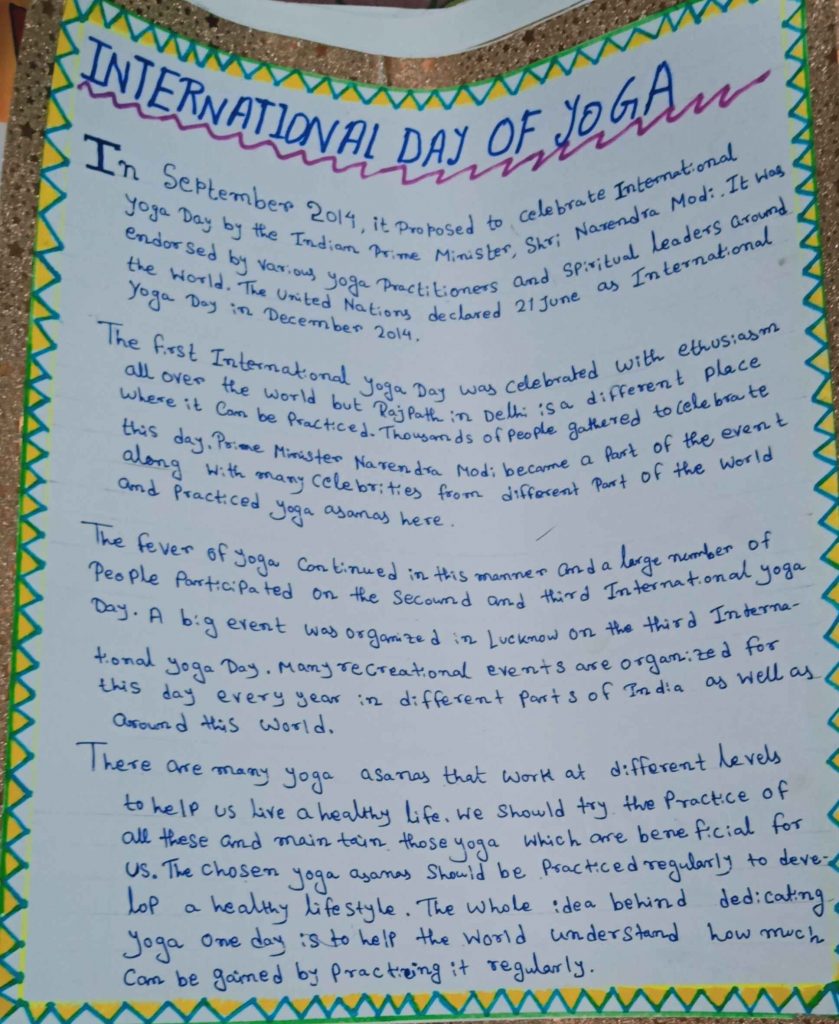 INTERNATIONAL DAY OF YOGA
In September 2014, it Proposed to celebrate International
Yoga Day by the Indian Prime Minister, Shri Narendra Modi. It was
endorsed by various yoga Practitioners and Spiritual Leaders around
the World. The United Nations declared 21 June as International
Yoga Day in December 2014.
The first International Yoga Day was celebrated with ethusiasm
all over the world but RajPath in Delhi is a different place
where it Can be Practiced. Thousands of People gathered to celebrate
this day. Prime Minister Narendra Modi became a Part of the event
along with many Celebrities from different Part of the World
and Practiced yoga asanas here.
The fever of yoga Continued in this manner and a large number of
People Participated on the Secound and third International yoga
Day. A big event was organized in Lucknow on the third Interna-
tional yoga Day. Many recreational events are organized for
this day every year in different Parts of India as well as
around this World.
There are many yoga asanas that work at different Levels
to help us live a healthy life. We Should try the Practice of
all these and maintain those yoga which are beneficial for
us. The Chosen yoga asanas Should be Practiced regularly to deve-
lop a healthy lifestyle. The whole idea behind dedicating
yoga one day is to help the World understand how much
Can be gained by Practicing it regularly.